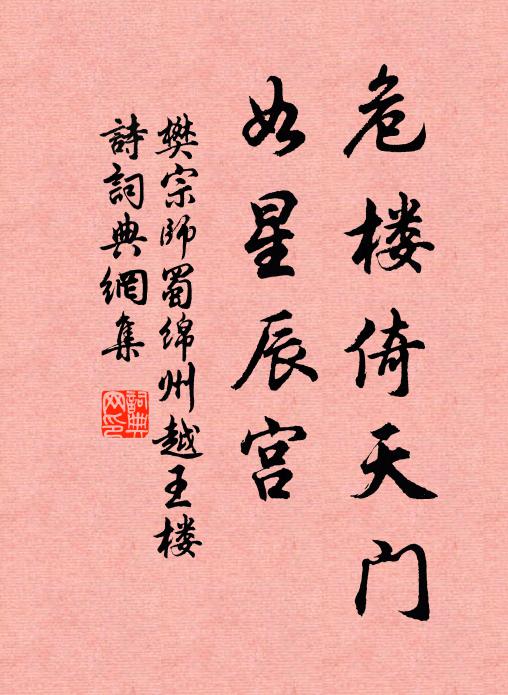 危楼倚天门
如星辰宫
樊宗师蜀绵州越王楼
詩詞典網集
詞典网印